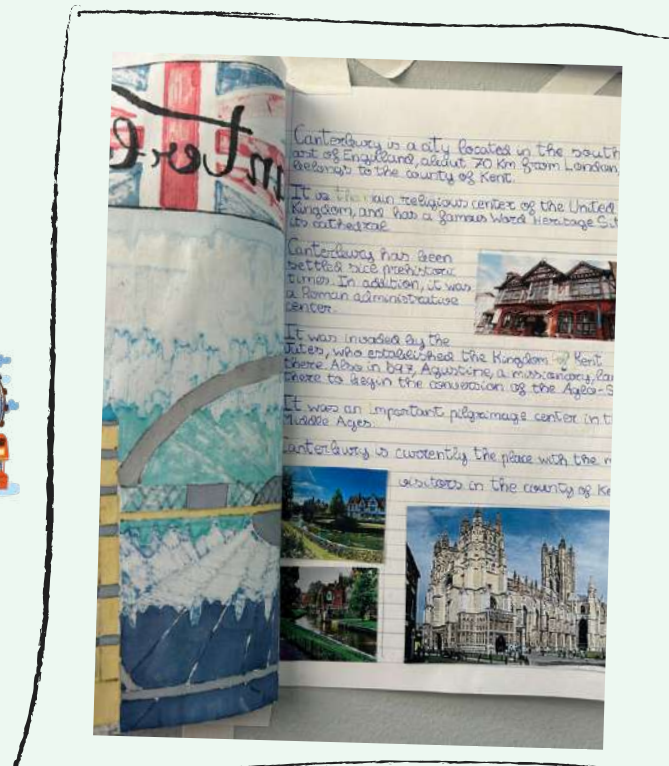 Canterbury is a city located in the south
ast of Engilland, about 70 Km from London,
belongs to the county of Kent.
It is the main religious center of the United
Kingdom, and has a famous Word Heritage Sit
its cathedral
Canterbury has been
settled sice prehistoric
times. In addition, it was
a Roman administrative
center.
It was invaded by the
Jutes, who established the Kingdom of Kent
there. Also in 597, Agustine, a missionary, lan
there to begin the conversion of the Aglo-S
It was an important pilgrimage center in t
Middle Ages.
Canterbury is currently the place with the m
visitors in the county of Ke